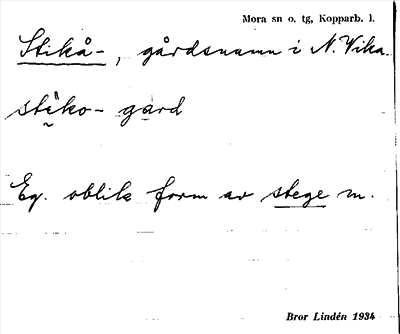 Mora sn o. tg, Kopparb. l.
Stikå-, gårdsnamn i N. Vika.
stiko- gard
Eg. oblik form av stege m.
Bror Lindén 1934